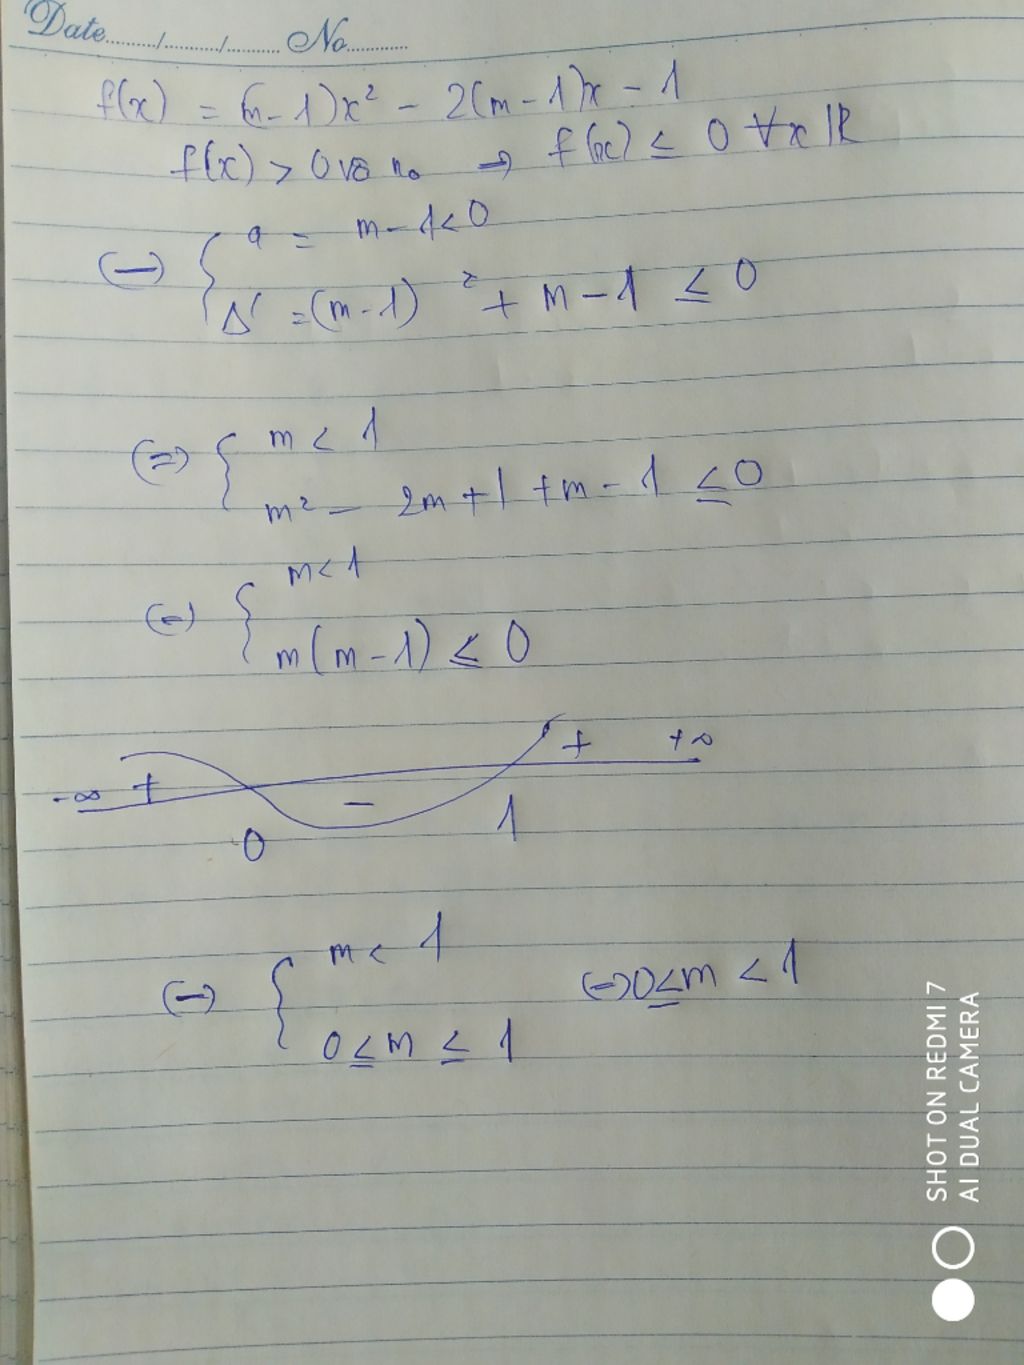 Date......../........./......... No............
f(x) = (m-1)x² - 2(m-1)x - 1
f(x) > 0 vô no → f(x) ≤ 0 ∀x ℝ
(=) { a = m-1<0
Δ' =(m-1)² + m-1 ≤ 0
(=) { m < 1
m² - 2m+1 +m-1 ≤0
(=) { m<1
m(m-1) ≤ 0
-∞ + 0 - 1 + +∞
(=) { m < 1 (=) 0≤m < 1
0≤m ≤ 1
SHOT ON REDMI 7
AI DUAL CAMERA